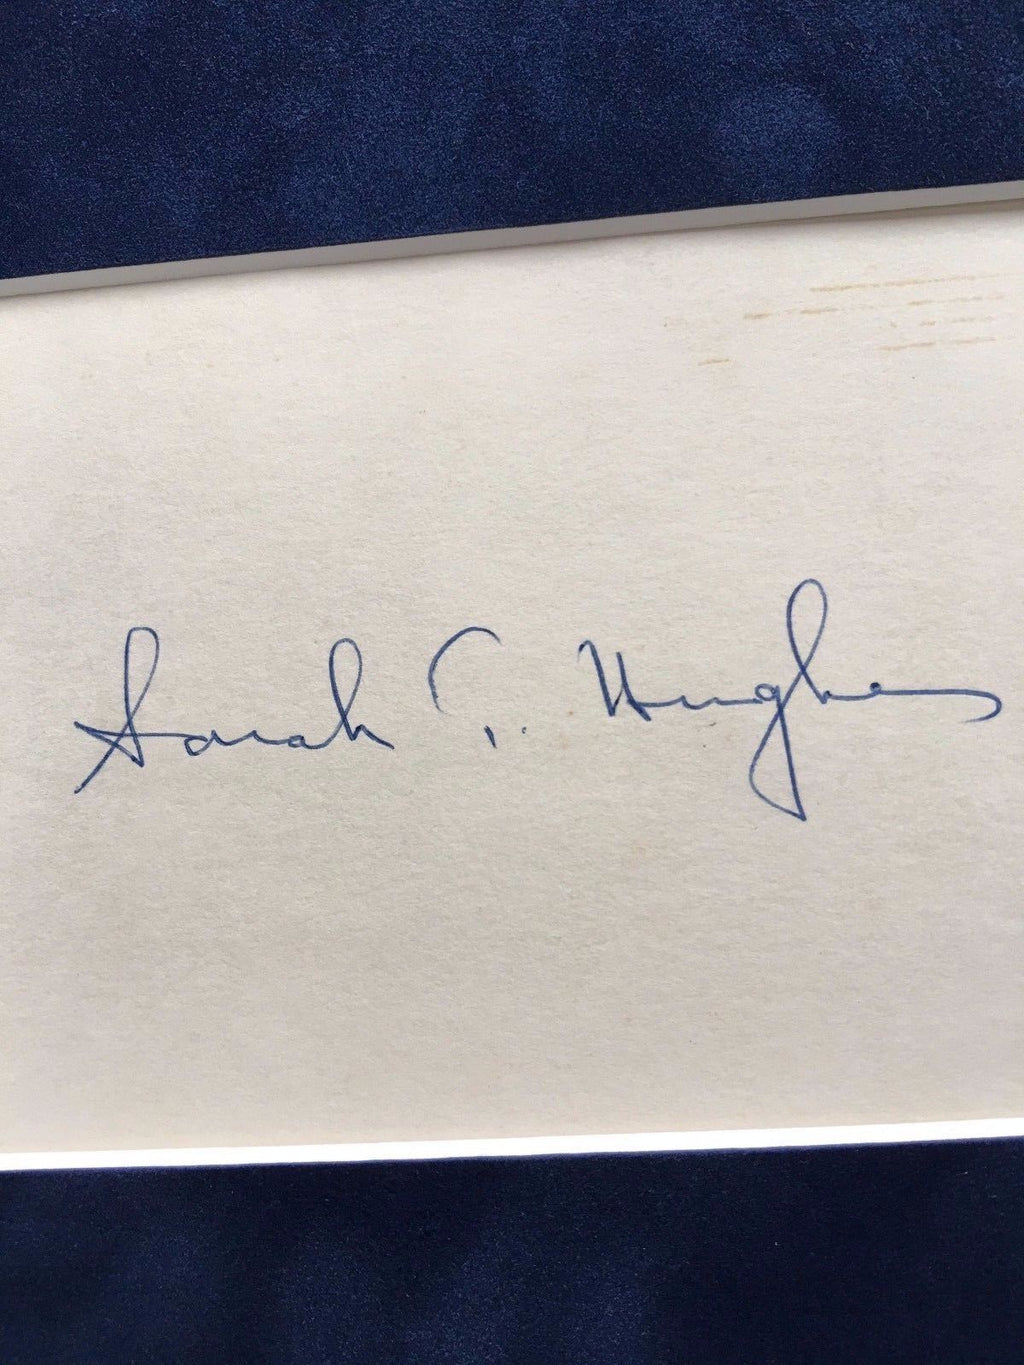 Sarah T. Hughes